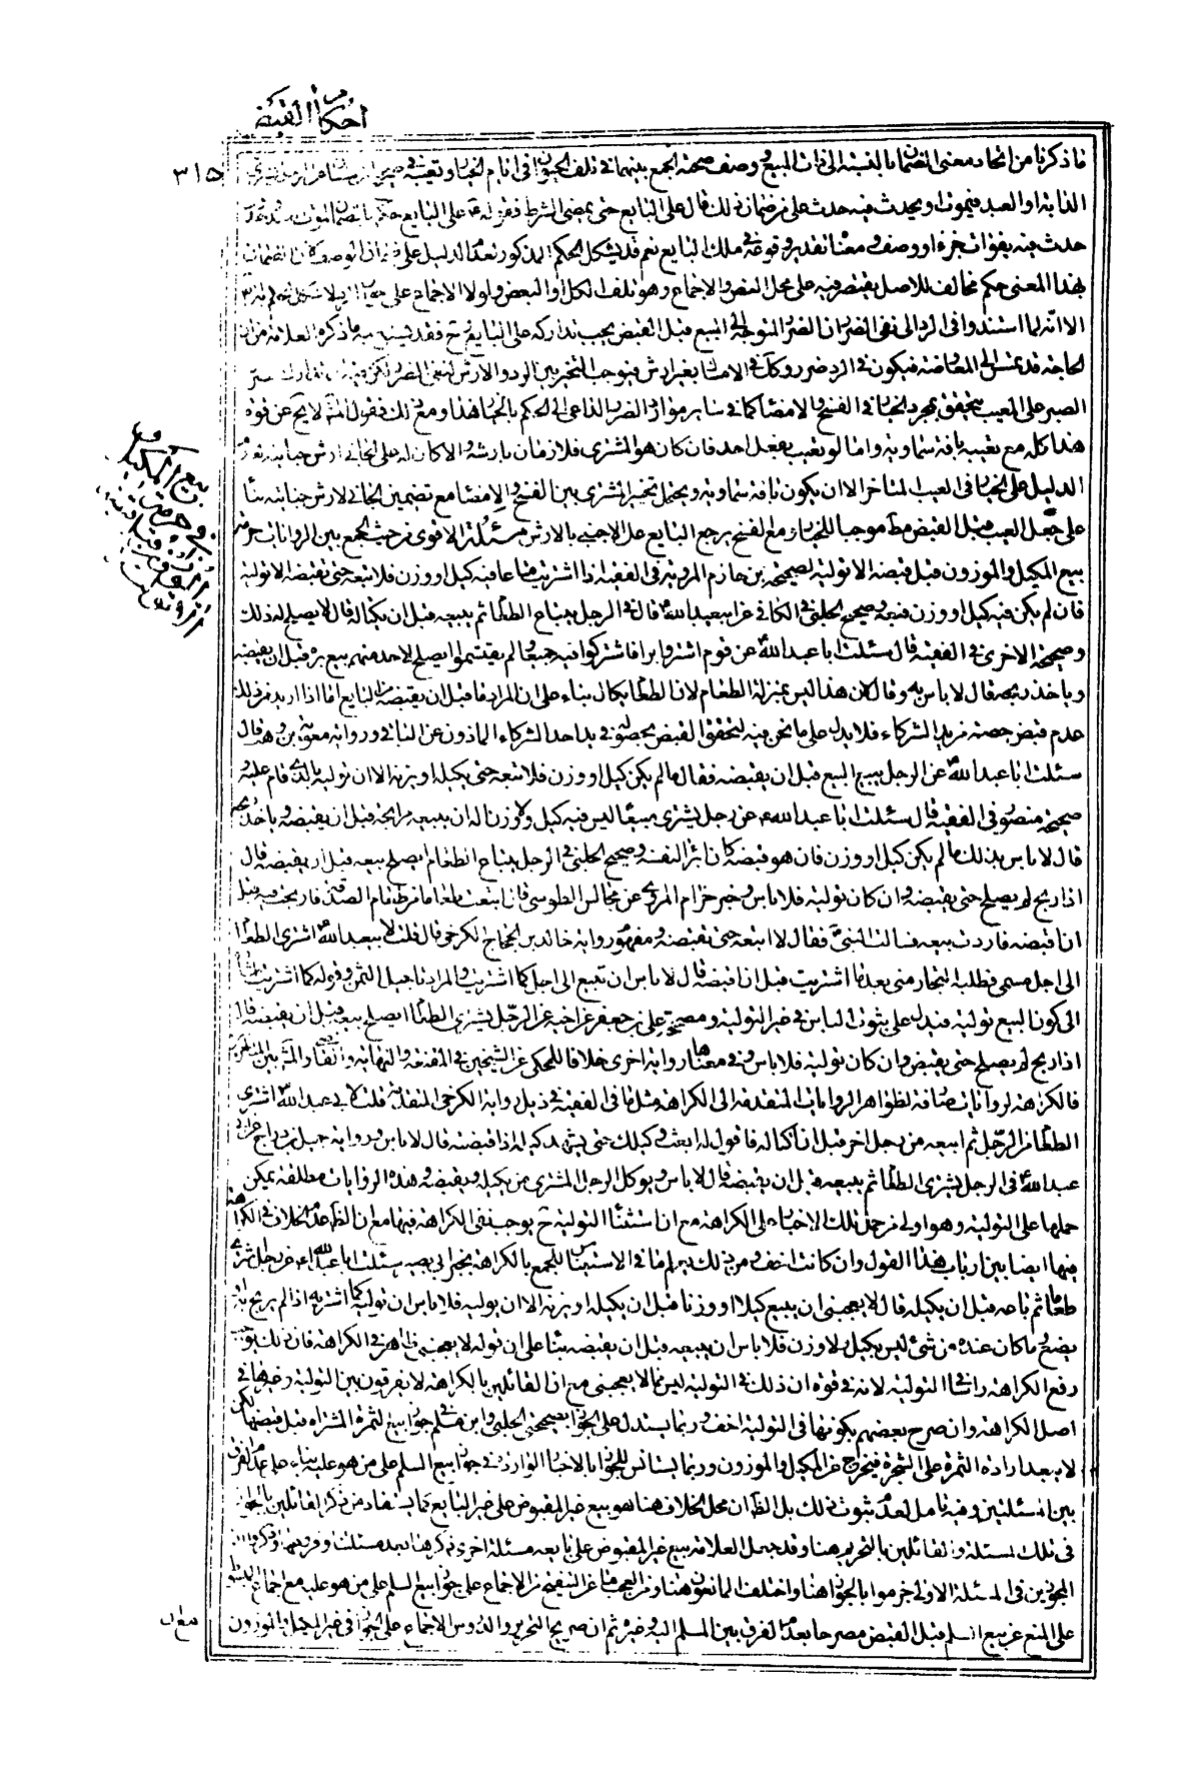 احكام القبض
٣١٥
ما ذكرنا من اتحاد معنى الضمان بالنسبة الى ذات المبيع و وصف صحته الجمع بينهما في تلف الحيوان في ايام الخيار وتعيبه في صحيحة ابن سنان عن الرجل يشترى
الدابة او العبد فيموت او يحدث فيه حدث على من ضمان ذلك قال على البايع حتى يمضى الشرط فقوله ع على البايع حكم بالضمان لموت
حدث فيه بفوات جزء او وصف ومعناه تقدير وقوعه في ملك البايع نعم قد يشكل الحكم المذكور لعدم الدليل على ضمان الوصف لان الضمان
بهذا المعنى حكم مخالف للاصل يقتصر فيه على محل النص والاجماع وهو تلف الكل او البعض ولولا الاجماع على
الا انه لما استندوا في الرد الى نفى الضرر ان الضرر المتوجه الى المبيع قبل القبض يجب تداركه على البايع ح فقد ما ذكره العلامة من ان
الحاجة قد تمس الى المعاوضة فيكون في الرد ضرر وكك في الامساك بغير ارش فيوجب التخيير بين الرد والارش لنفى الضرر لكن فيه
الصبر على المعيب يتحقق بمجرد الخيار في الفسخ والامضاء كما في ساير موارد الضرر الداعى الى الحكم بالخيار هذا ومع ذلك فقول المش لا يخ عن قوة
هذا كله مع تعيبه بافة سماوية واما لو تعيب بفعل احد فان كان هو المشترى فلا ضمان بارشه والا كان له على الجانى ارش جنايته لعدم
الدليل على الخيار في العيب المتاخر الا ان يكون بافة سماوية ويحتمل تخير المشترى بين الفسخ والامضاء مع تضمين الجانى لارش جنايته بناء
على جعل العيب قبل القبض مط موجبا للخيار ومع الفسخ يرجع البايع على الاجنبى بالارش مسئلة الاقوى من حيث الجمع بين الروايات حرمة
بيع المكيل والموزون قبل قبضه الا تولية لصحيحة بن حازم المروية في الفقيه اذا اشتريت متاعا فيه كيل او وزن فلا تبعه حتى تقبضه الا تولية
فان لم يكن فيه كيل او وزن فبعه وصحيحة الحلبى في الكافى عن ابيعبد الله ع قال في الرجل يبتاع الطعام ثم يبيعه قبل ان يكتاله قال لا يصلح له ذلك
وصحيحة الاخرى في الفقيه قال سئلت ابا عبد الله ع عن قوم اشتروا بزا فاشتركوا فيه جميعا ولم يقتسموا ايصلح لاحد منهم بيع بزه قبل ان يقبضه
وياخذ ربحه قال لا باس به وقال ان هذا ليس بمنزلة الطعام لان الطعام يكال بناء على ان المراد قبل ان يقبضه من البايع اما اذا اريد من ذلك
عدم قبض حصته من يد الشركاء فلا يدل على ما نحن فيه لتحقق القبض بحصوله في يد احد الشركاء الماذون عن الباقى ورواية معوية بن وهب قال
سئلت ابا عبد الله ع عن الرجل يبيع البيع قبل ان يقبضه فقال ما لم يكن كيل او وزن فلا تبعه حتى تكيله او تزنه الا ان توليه بالذى قام عليه و
صحيحة منصور في الفقيه قال سئلت ابا عبد الله ع عن رجل يشترى مبيعا ليس فيه كيل ولا وزن اله ان يبيعه مرابحة قبل ان يقبضه وياخذ ربحه
قال لا باس بذلك ما لم يكن كيل او وزن فان هو قبضه كان ابرء لنفسه وصحيحة الحلبى في الرجل يبتاع الطعام ايصلح بيعه قبل ان يقبضه قال
اذا ربح لم يصلح حتى يقبضه وان كان تولية فلا باس وخبر حزام المروى عن مجالس الطوسى قال ابتعت طعاما من طعام الصدقة فاربحت فيه قبل
ان اقبضه فاردت بيعه فسالت النبى ص فقال لا تبعه حتى تقبضه ومفهوم رواية خالد بن الحجاج الكرخى قال قلت لابيعبد الله ع اشترى الطعام
الى اجل مسمى فطلبه التجار منى بعد ما اشتريت قبل ان اقبضه قال لا باس ان تبيع الى اجل كما اشتريت والمراد تاجيل الثمن وقوله كما اشتريت اشارة
الى كون البيع تولية فيدل على ثبوت الباس في غير التولية ومصححة على بن جعفر عن اخيه عن الرجل يشترى الطعام ايصلح بيعه قبل ان يقبضه قال
اذا ربح لم يصلح حتى يقبض وان كان تولية فلا باس وفى معناها رواية اخرى خلافا للمحكى عن الشيخين في المقنعة والنهاية والقاضى والمش بين المتاخرين
فالكراهة لروايات صارفة لظواهر الروايات المتقدمة الى الكراهة مثل ما في الفقيه في ذيل رواية الكرخى المتقدمة قلت لابى عبد الله ع اشترى
الطعام من الرجل ثم ابيعه من رجل اخر قبل ان اكتاله فاقول له ابعث وكيلك حتى يشهد كيله اذا قبضته قال لا باس ورواية جميل بن دراج عن ابى
عبد الله ع في الرجل يشترى الطعام ثم يبيعه قبل ان يقبضه قال لا باس ويوكل الرجل المشترى من بكيله ويقبضه وهذه الروايات مطلقة يمكن
حملها على التولية وهو اولى من حمل تلك الاخبار على الكراهة مع ان استثناء التولية ح يوجب نفى الكراهة فيها مع ان الظاهر عدم الخلاف في الكراهة
فيها ايضا بين ارباب هذا القول وان كانت اخف ومن ذلك يعلم ما في الاستيناس للجمع بالكراهة بخبر ابى بصير سئلت ابا عبد الله ع عن رجل اشترى
طعاما ثم باعه قبل ان يكيله قال لا يعجبنى ان يبيع كيلا او وزنا قبل ان يكيله او يزنه الا ان يوليه فلا باس ان توليه كما اشتريه اذا لم يربح به او
يضع وما كان عنده من شئ ليس بكيل ولا وزن فلا باس ان يبيعه قبل ان يقبضه بناء على ان قوله لا يعجبنى ظاهر في الكراهة فان ذلك يوجب
رفع الكراهة راسا في التولية لانه في قوة ان ذلك في التولية ليس مما لا يعجبنى مع ان القائلين بالكراهة لا يفرقون بين التولية وغيرها في
اصل الكراهة وان صرح بعضهم بكونها في التولية اخف وربما يستدل على الجواز بصحيحتى الحلبى وابن مسلم في جواز بيع الثمرة المشتراة قبل قبضها لكن
لا يبعد ارادة الثمرة على الشجرة فيخرج عن المكيل والموزون وربما يستانس للجواز بالاخبار الواردة في جواز بيع السلم على من هو عليه بناء على عدم الفرق
بين المسئلتين وفيه تامل لعدم ثبوت ذلك بل الظ ان محل الخلاف هنا هو بيع غير المقبوض على غير البايع كما يستفاد من ذكر القائلين بالجواز
في تلك المسئلة والقائلين بالتحريم هنا وقد جعل العلامة بيع غير المقبوض على بايعه مسئلة اخرى ذكرها بعد مسئلتنا وفروعها وذكر ان
المجوزين في المسئلة الاولى جزموا بالجواز هنا واختلف المانعون هنا ومن العجب ما عن التنقيح من الاجماع على جواز بيع السلم على من هو عليه مع اجماع المبسوط
على المنع عن بيع السلم قبل القبض مصرحا بعدم الفرق بين المسلم اليه وغيره ثم ان صريح التحرير والدروس الاجماع على الجواز في غير المكيل والموزون
بيع المكيل و